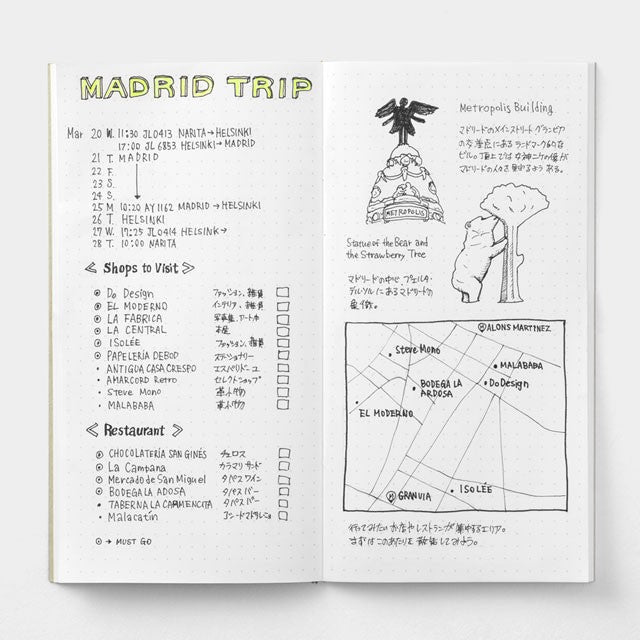 MADRID TRIP
Mar 20 W. 11:30 JL0413 NARITA→HELSINKI
17:00 JL6853 HELSINKI→MADRID
21 T. MADRID
22 F.
23 S.
24 S.
25 M 10:20 AY1162 MADRID→HELSINKI
26 T. HELSINKI
27 W. 17:25 JL0414 HELSINK→
28 T. 10:00 NARITA
≪ Shops to Visit ≫
Do Design ファッション、雑貨
EL MODERNO インテリア、雑貨
LA FABRICA 写真集、アート本
LA CENTRAL 本屋
ISOLÉE ファッション、雑貨
PAPELERÍA DEBOD ステーショナリー
ANTIGUA CASA CRESPO エスパドリーユ
AMARCORD Retro セレクトショップ
Steve Mono 革小物
MALABABA 革小物
≪ Restaurant ≫
CHOCOLATERÍA SAN GINÉS チュロス
La Campana カラマリサンド
Mercado de San Miguel タパス ワイン
BODEGA LA ADOSA タパス バー
TABERNA LA CARMENCITA タパス バー
Malacatín コシードマドリレーニョ
→ MUST GO
Metropolis Building
マドリードのメインストリート グランビア
の交差点にあるランドマーク的な
ビルの頂上では女神ニケの像が
マドリードの人々を見守るようある。
METROPOLIS
Statue of the Bear and
the Strawberry Tree
マドリードの中心、プエルタ・
デル・ソルにあるマドリードの
象徴。
ALONS MARTINEZ
Steve Mono
MALABABA
BODEGA LA
ARDOSA
Do Design
EL MODERNO
ISOLÉE
GRANVIA
行ってみたいお店やレストランが集中するエリア。
まずはこのあたりを散策してみよう。